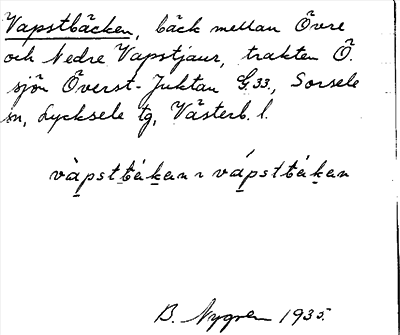 Vapstbäcken, bäck mellan Övre
och Nedre Vapstjaur, trakten Ö.
sjön Överst-Juktan G.33., Sorsele
sn, Lycksele tg, Västerb. l.
B. Nygren 1935.